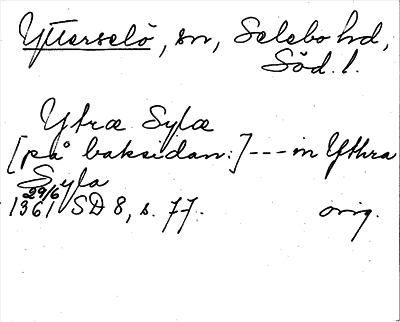 Ytterselö, sn, Selebo hd,
Söd. l.
Ytræ Sylæ
[på baksidan:] --- in Ythra
Syla
29/6
1361 SD 8, s. 77. orig.